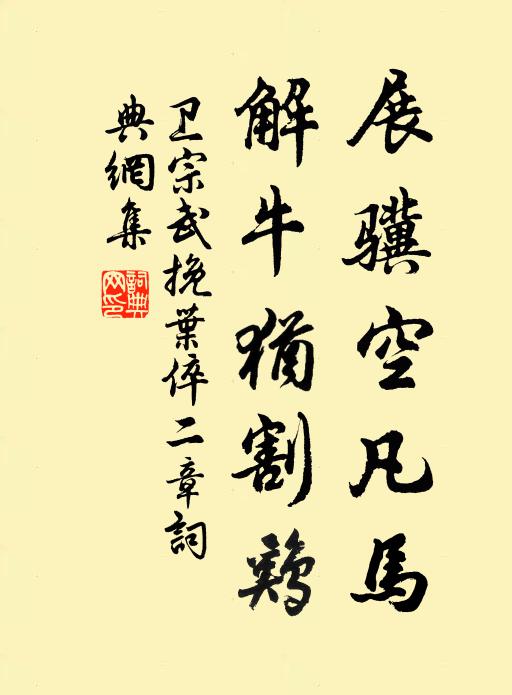 展骥空凡馬
解牛猶割鷄
卫宗武挽葉倅二章詞
典網集
詞典网印